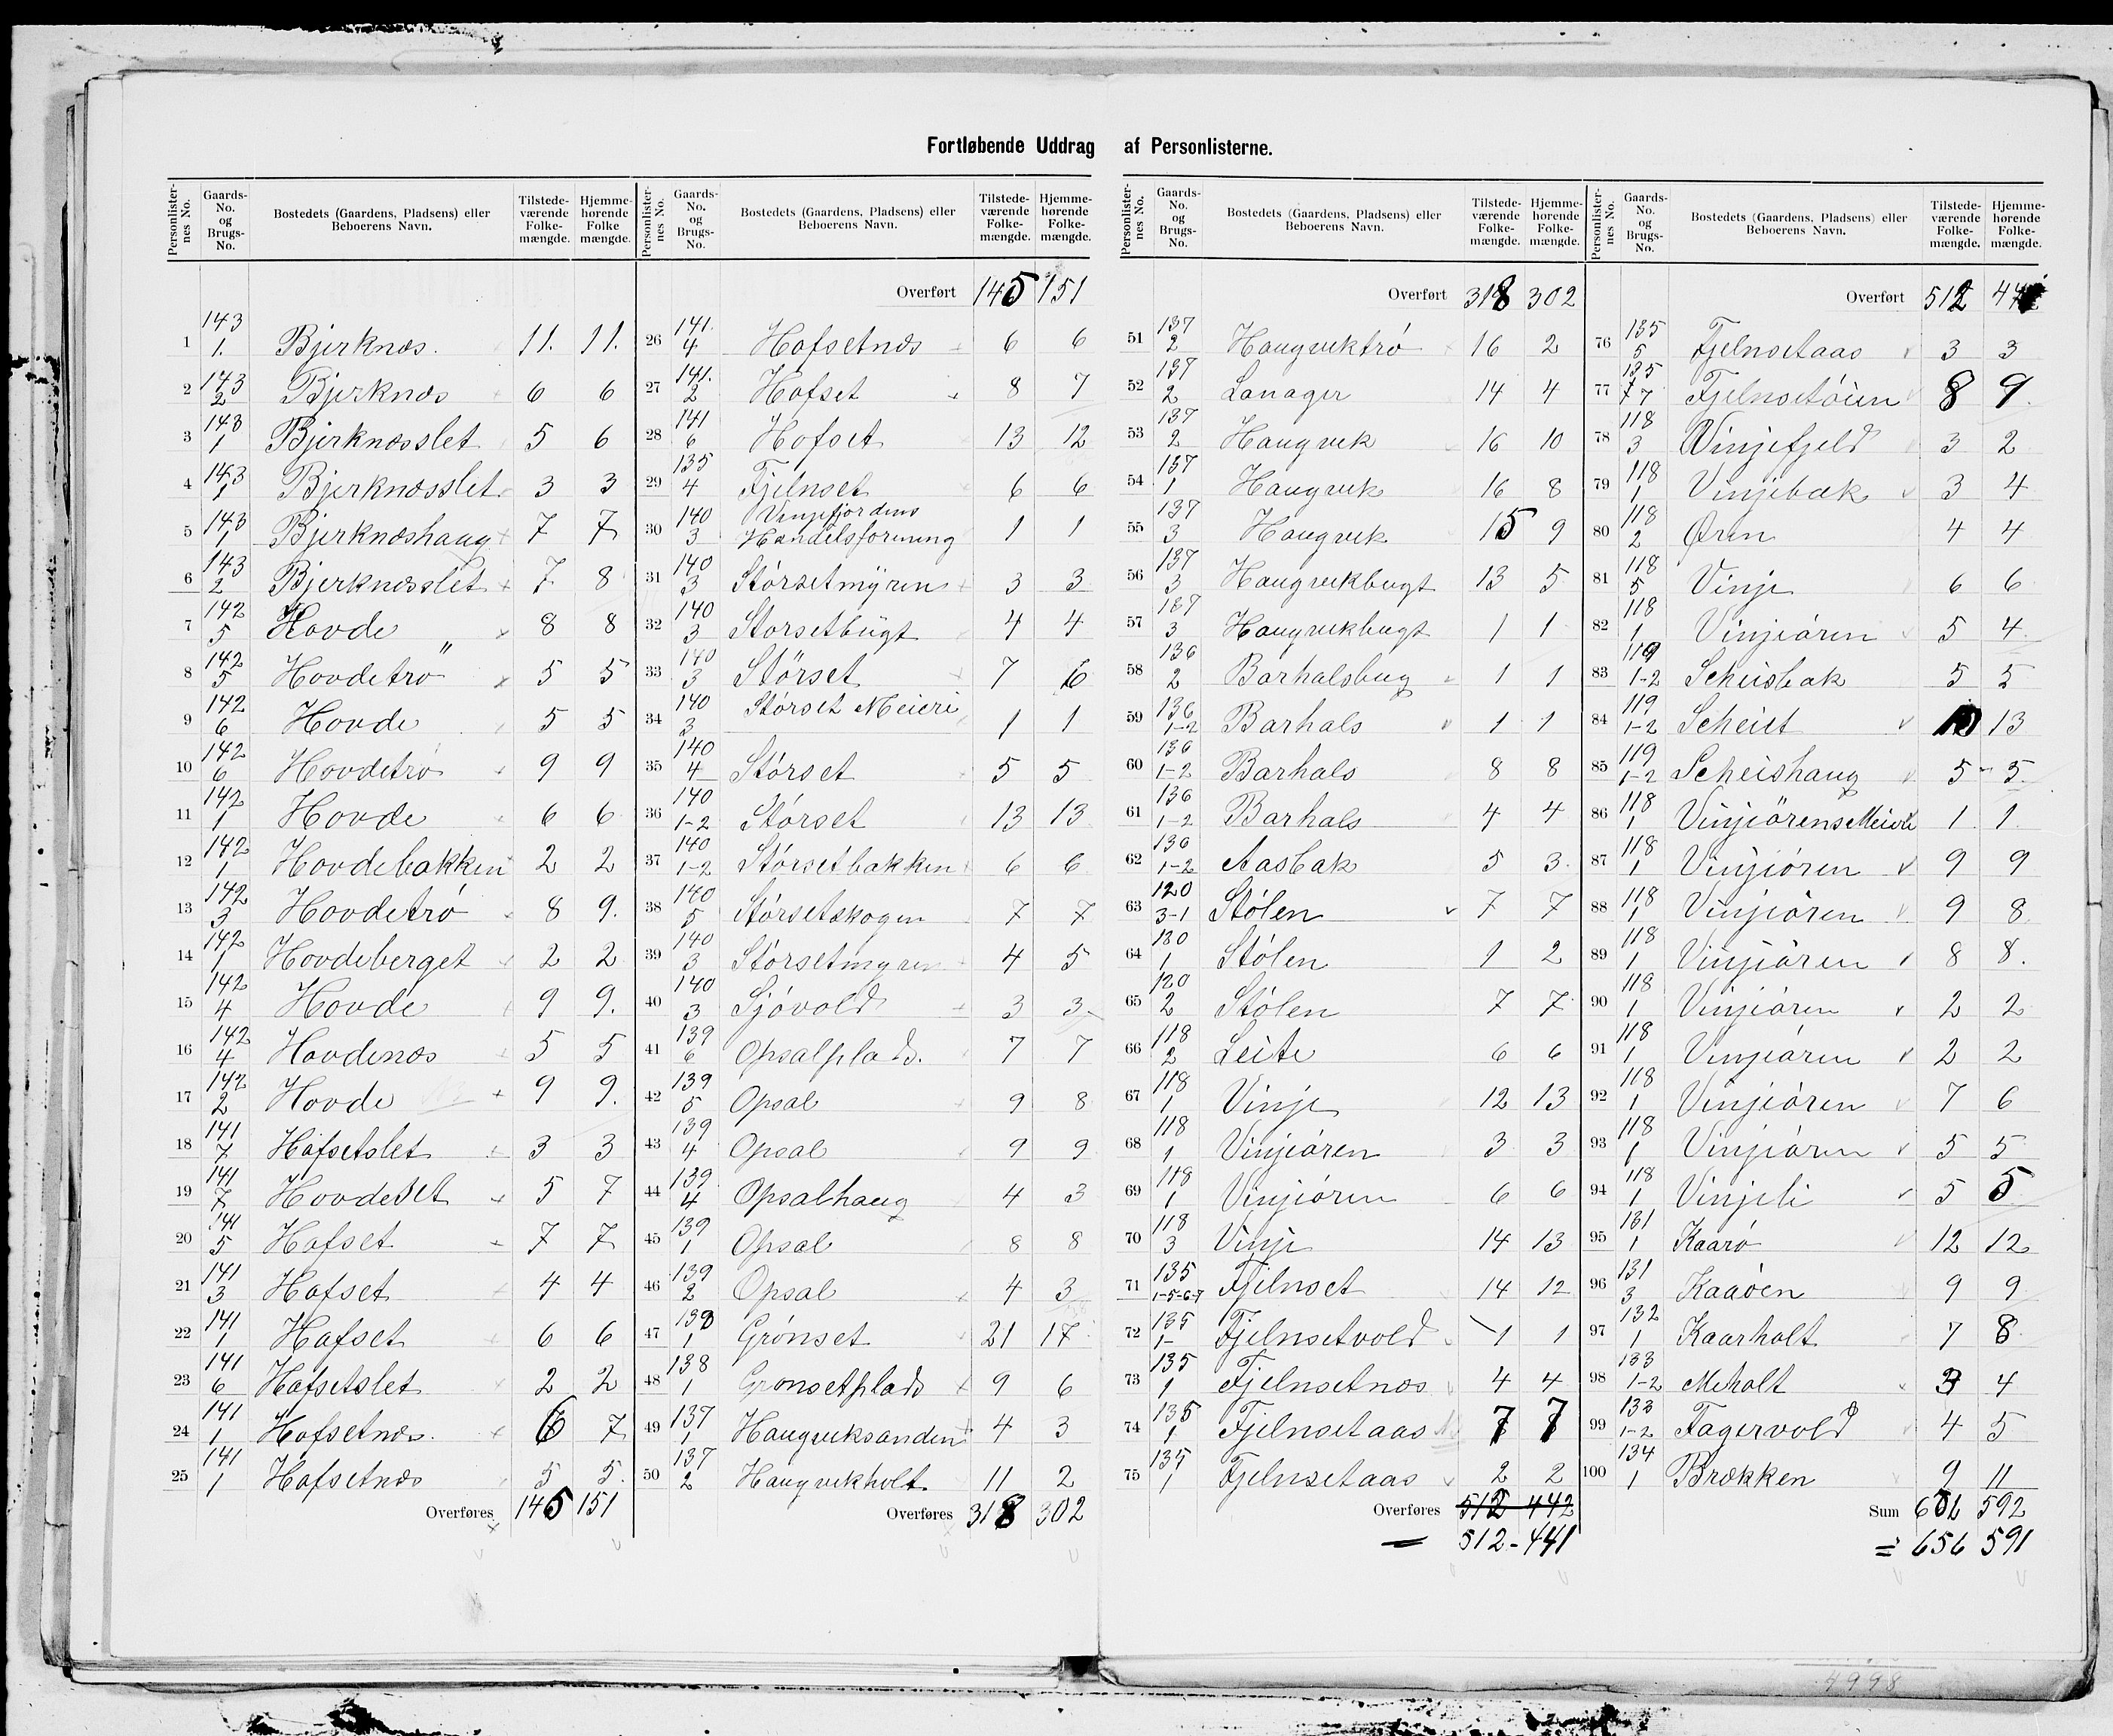 Fortløbende Uddrag af Personlisterne.
Personlisternes No. Gaards-No. og Brugs-No. Bostedets (Gaardens, Pladsens) eller Beboerens Navn. Tilstedeværende Folkemængde. Hjemmehørende Folkemængde.
1 143 1. Bjerknæs. 11. 11.
2 143 2 Bjerknæs 6 6
3 143 1 Bjerknæsslet 5 6
4 143 1 Bjerknæsslet 3 3
5 143 1 Bjerknæshaug 7 7
6 143 2 Bjerknæsslet 7 8
7 142 5 Hovde 8 8
8 142 5 Hovdetrö 5 5
9 142 6 Hovde 5 5
10 142 6 Hovdetrö 9 9
11 142 1 Hovde 6 6
12 142 1 Hovdebakken 2 2
13 142 3 Hovdetrö 8 9.
14 142 1 Hovdeberget 2 2
15 142 4 Hovde 9 9.
16 142 4 Hovdenæs 5 5
17 142 2 Hovde 9 9.
18 141 7 Hafsetslet 3 3
19 141 7 Hovdeset 5 7
20 141 5 Hafset 7 7
21 141 3 Hafset 4 4
22 141 1 Hafset 6 6
23 141 6 Hafsetslet 2 2
24 141 1 Hofsetnæs. 6 7
25 141 1 Hafsetnæs 5 5.
Overføres 145 151
Personlisternes No. Gaards-No. og Brugs-No. Bostedets (Gaardens, Pladsens) eller Beboerens Navn. Tilstedeværende Folkemængde. Hjemmehørende Folkemængde.
Overført 145 151
26 141. 4 Hofsetnæs 6 6
27 141. 2 Hofset 8 7
28 141 6 Hofset 13 12
29 135 4 Fjelnset 6 6
30 140 3 Vinjefjordens Handelsforening 1 1
31 140 3 Störsetmyren 3 3
32 140 3 Störsetbugt 4 4
33 140 3 Störset 7 6
34 140 3 Störset Meieri 1 1
35 140 4 Störset 5 5
36 140 1-2 Störset 13 13
37 140 1-2 Störsetbakken 6 6
38 140 5 Störsetskogen 7 7
39 140 3 Störsetmyren 4 5
40 140 3 Sjövold 3 3
41 139 6 Opsalplads. 7 7
42 139 5 Opsal 9 8
43 139 4 Opsal 9 9
44 139 4 Opsalhaug 4 3
45 139 1 Opsal 8 8
46 139 2 Opsal 4 3
47 138 1 Grönset 21 17
48 138 1 Grönsetplads 9 6
49 137 1 Haugviksanden 4 3
50 137 2 Haugvikholt. 11 2
Overføres 318 302
Personlisternes No. Gaards-No. og Brugs-No. Bostedets (Gaardens, Pladsens) eller Beboerens Navn. Tilstedeværende Folkemængde. Hjemmehørende Folkemængde.
Overført 318 302
51 137 2 Haugviktrö 16 2
52 137 2 Lanager 14 4
53 137 2 Haugvik 16 10
54 137 1 Haugvik 16 8
55 137 3 Haugvik 15 9
56 137 3 Haugvikbugt 13 5
57 137 3 Haugvikbugt 1 1
58 136 2 Barhalsbug 1 1
59 136 1-2 Barhals 1 1
60 136 1-2 Barhals 8 8
61 136 1-2 Barhals 4 4
62 136 1-2 Aasbak 5 3
63 120 3-1 Stölen 7 7
64 120 1 Stölen 1 2
65 120 2 Stölen 7 7
66 118 2 Leite 6 6
67 118 1 Vinje 12 13
68 118 1 Vinjeören 3 3
69 118 1 Vinjeören 6 6
70 118 3 Vinje 14 13
71 135 1-5-6-7 Fjelnset 14 12
72 135 1- Fjelnsetvold 1 1
73 135 1 Fjelnsetnæs 4 4
74 135 1 Fjelnsetaas 7 7
75 135 1 Fjelnsetaas 2 2
Overføres 512 442
= 512-441
Personlisternes No. Gaards-No. og Brugs-No. Bostedets (Gaardens, Pladsens) eller Beboerens Navn. Tilstedeværende Folkemængde. Hjemmehørende Folkemængde.
Overført 512
76 135 5 Fjelnsetaas 3 3
77 135 7 Fjelnsetöien 8 9.
78 118 3 Vinjefjeld 3 2
79 118 1 Vinjebak 3 4
80 118 2 Øren 4 4
81 118 5 Vinje 6 6
82 118 1 Vinjeören 5 4
83 119 1-2 Scheisbak 5 5
84 119 1-2 Scheiet 10 13
85 119 1-2 Scheishaug 5 5.
86 118 1 Vinjeörens Meieri 1 1
87 118 1 Vinjeören 9 9
88 118 1 Vinjeören 9 8
89 118 1 Vinjeören 8 8.
90 118 1 Vinjeören 2 2
91 118 1 Vinjeören 2 2
92 118 1 Vinjeören 7 6
93 118 1 Vinjeören 5 5
94 118 1 Vinjeli 5 5
95 131 1 Kaarö 12 12
96 131 3 Kaaöen 9 9
97 132 1 Kaarholt 7 8
98 133 1-2 Meholt 3 4
99 133 1-2 Fagervold 4 5
100 134 1 Brækken 9 11
Sum 592
= 656 591
4998